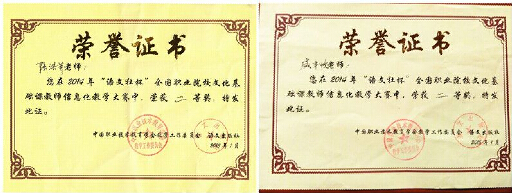 荣誉证书
老师:
您在2014年“语文社杯”全国职业院校文化基
础课教师信息化教学大赛中,荣获 二 等奖,特发
此证。
中国职业技术教育学会教学工作委员会 语文出版社
2015年1月
荣誉证书
老师:
您在2014年“语文社杯”全国职业院校文化基
础课教师信息化教学大赛中,荣获 二 等奖,特发
此证。
中国职业技术教育学会教学工作委员会 语文出版社
2015年1月